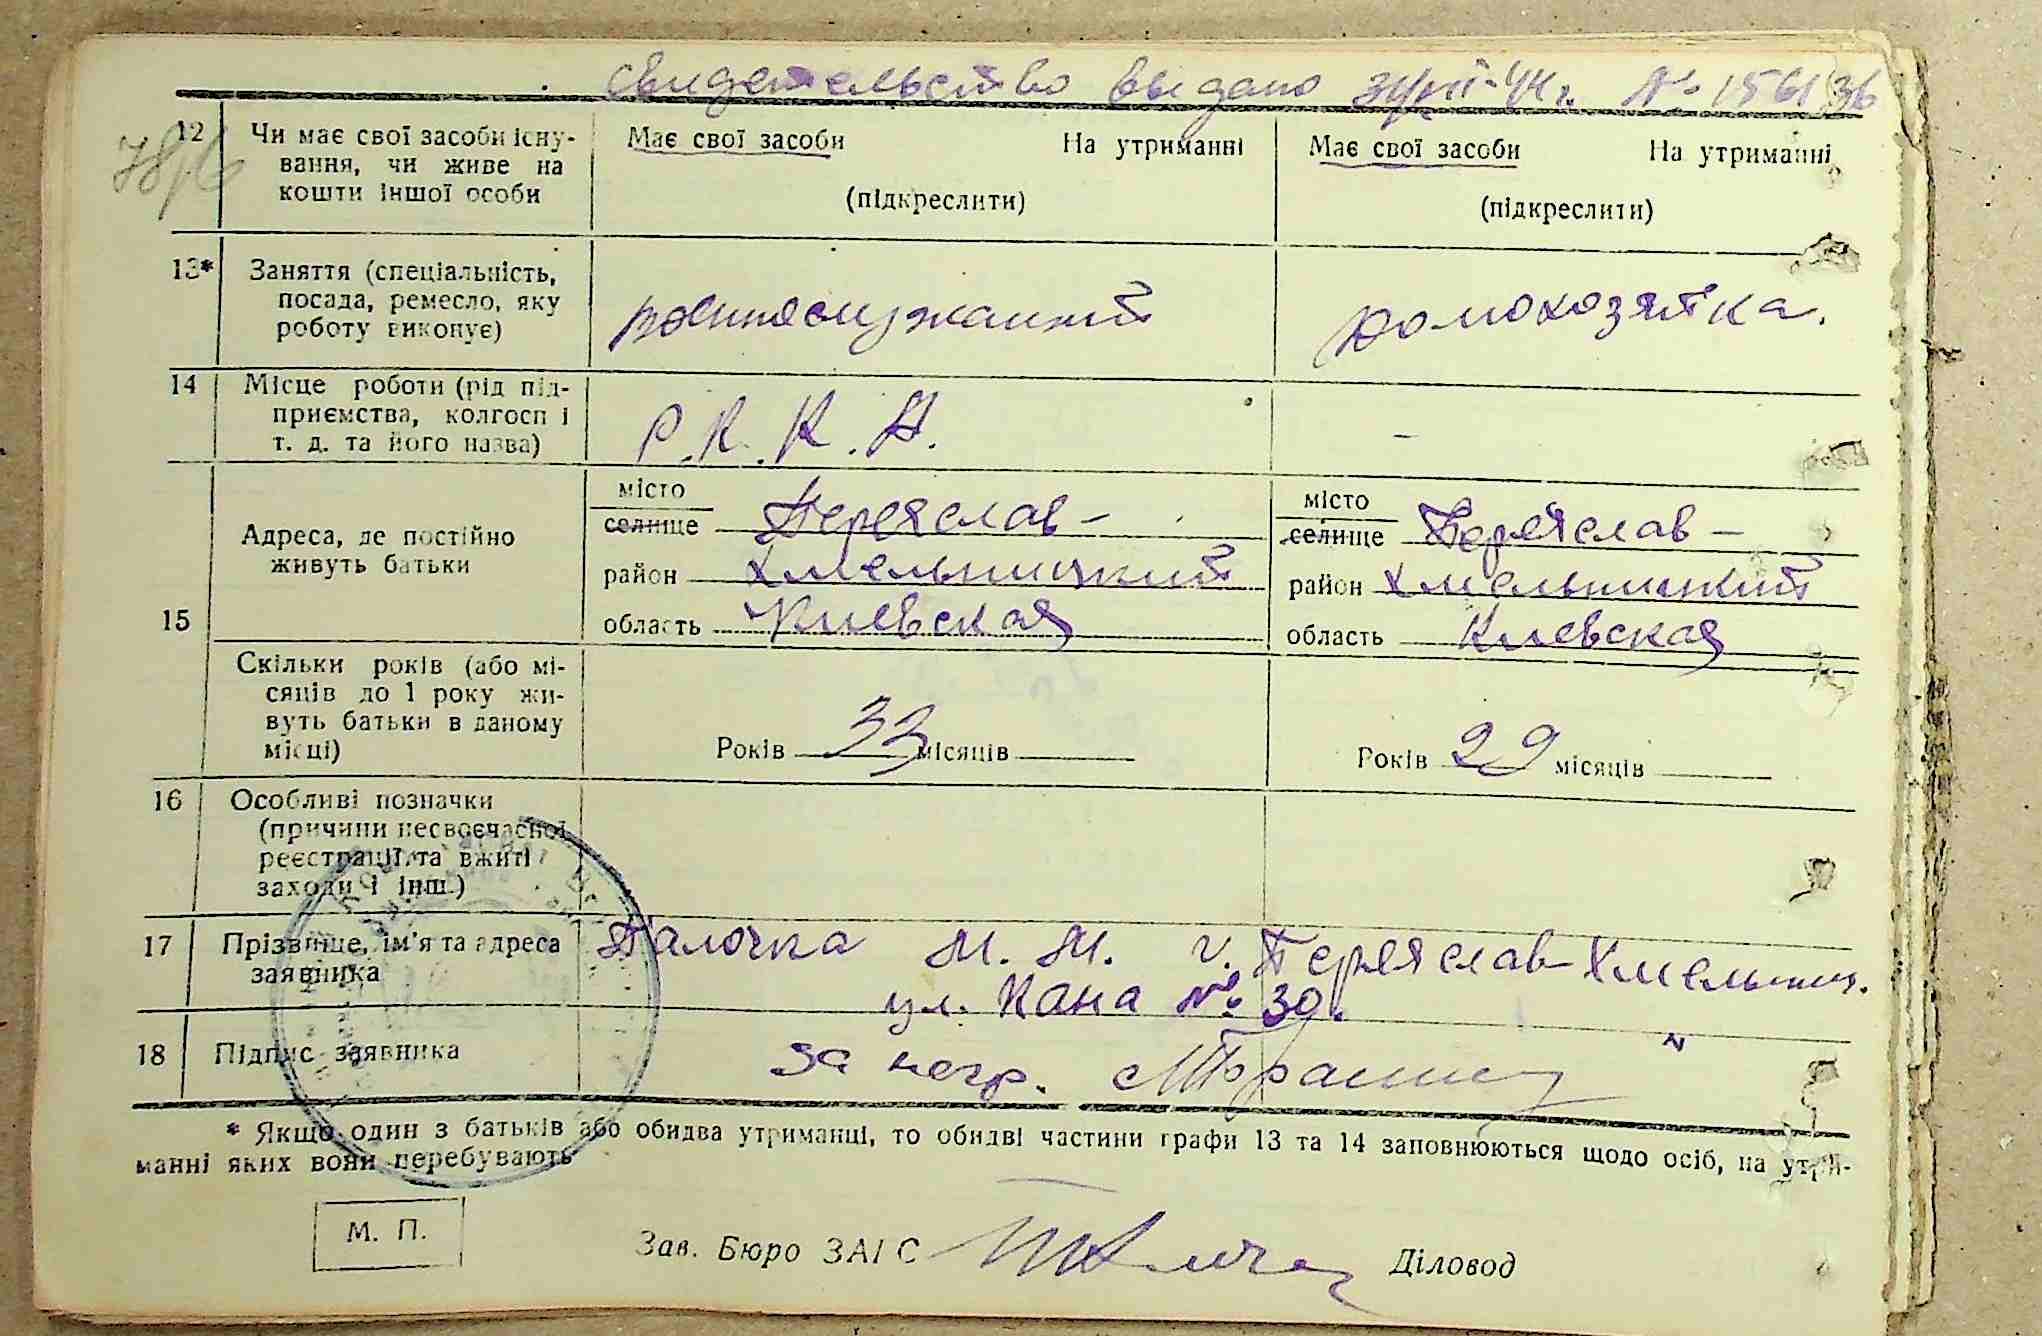 свидетельство выдано г. № 156136
12 Чи має свої засоби існу-
вання, чи живе на
кошти іншої особи
Має свої засоби На утриманні
(підкреслити)
Має свої засоби На утриманні
(підкреслити)
13* Заняття (спеціальність,
посада, ремесло, яку
роботу виконує)
военнослужащий
домохозяйка.
14 Місце роботи (рід під-
приємства, колгосп і
т. д. та його назва)
Р.К.К.А.
-
15 Адреса, де постійно
живуть батьки
місто
селище Переяслав-
район Хмельницкий
область Киевская
місто
селище Переяслав-
район Хмельницкий
область Киевская
Скільки років (або мі-
сяців до 1 року жи-
вуть батьки в даному
місці)
Років 33 місяців
Років 29 місяців
16 Особливі позначки
(причини несвоєчасної
реєстрації та вжиті
заходи і інш.)
17 Прізвище, ім'я та адреса
заявника
Палочка М. М. г. Переяслав-Хмельниц.
ул. Кана № 30.
18 Підпис заявника
за негр.
* Якщо один з батьків або обидва утриманці, то обидві частини графи 13 та 14 заповнюються щодо осіб, на утри-
манні яких вони перебувають
М. П.
Зав. Бюро ЗАГС Діловод